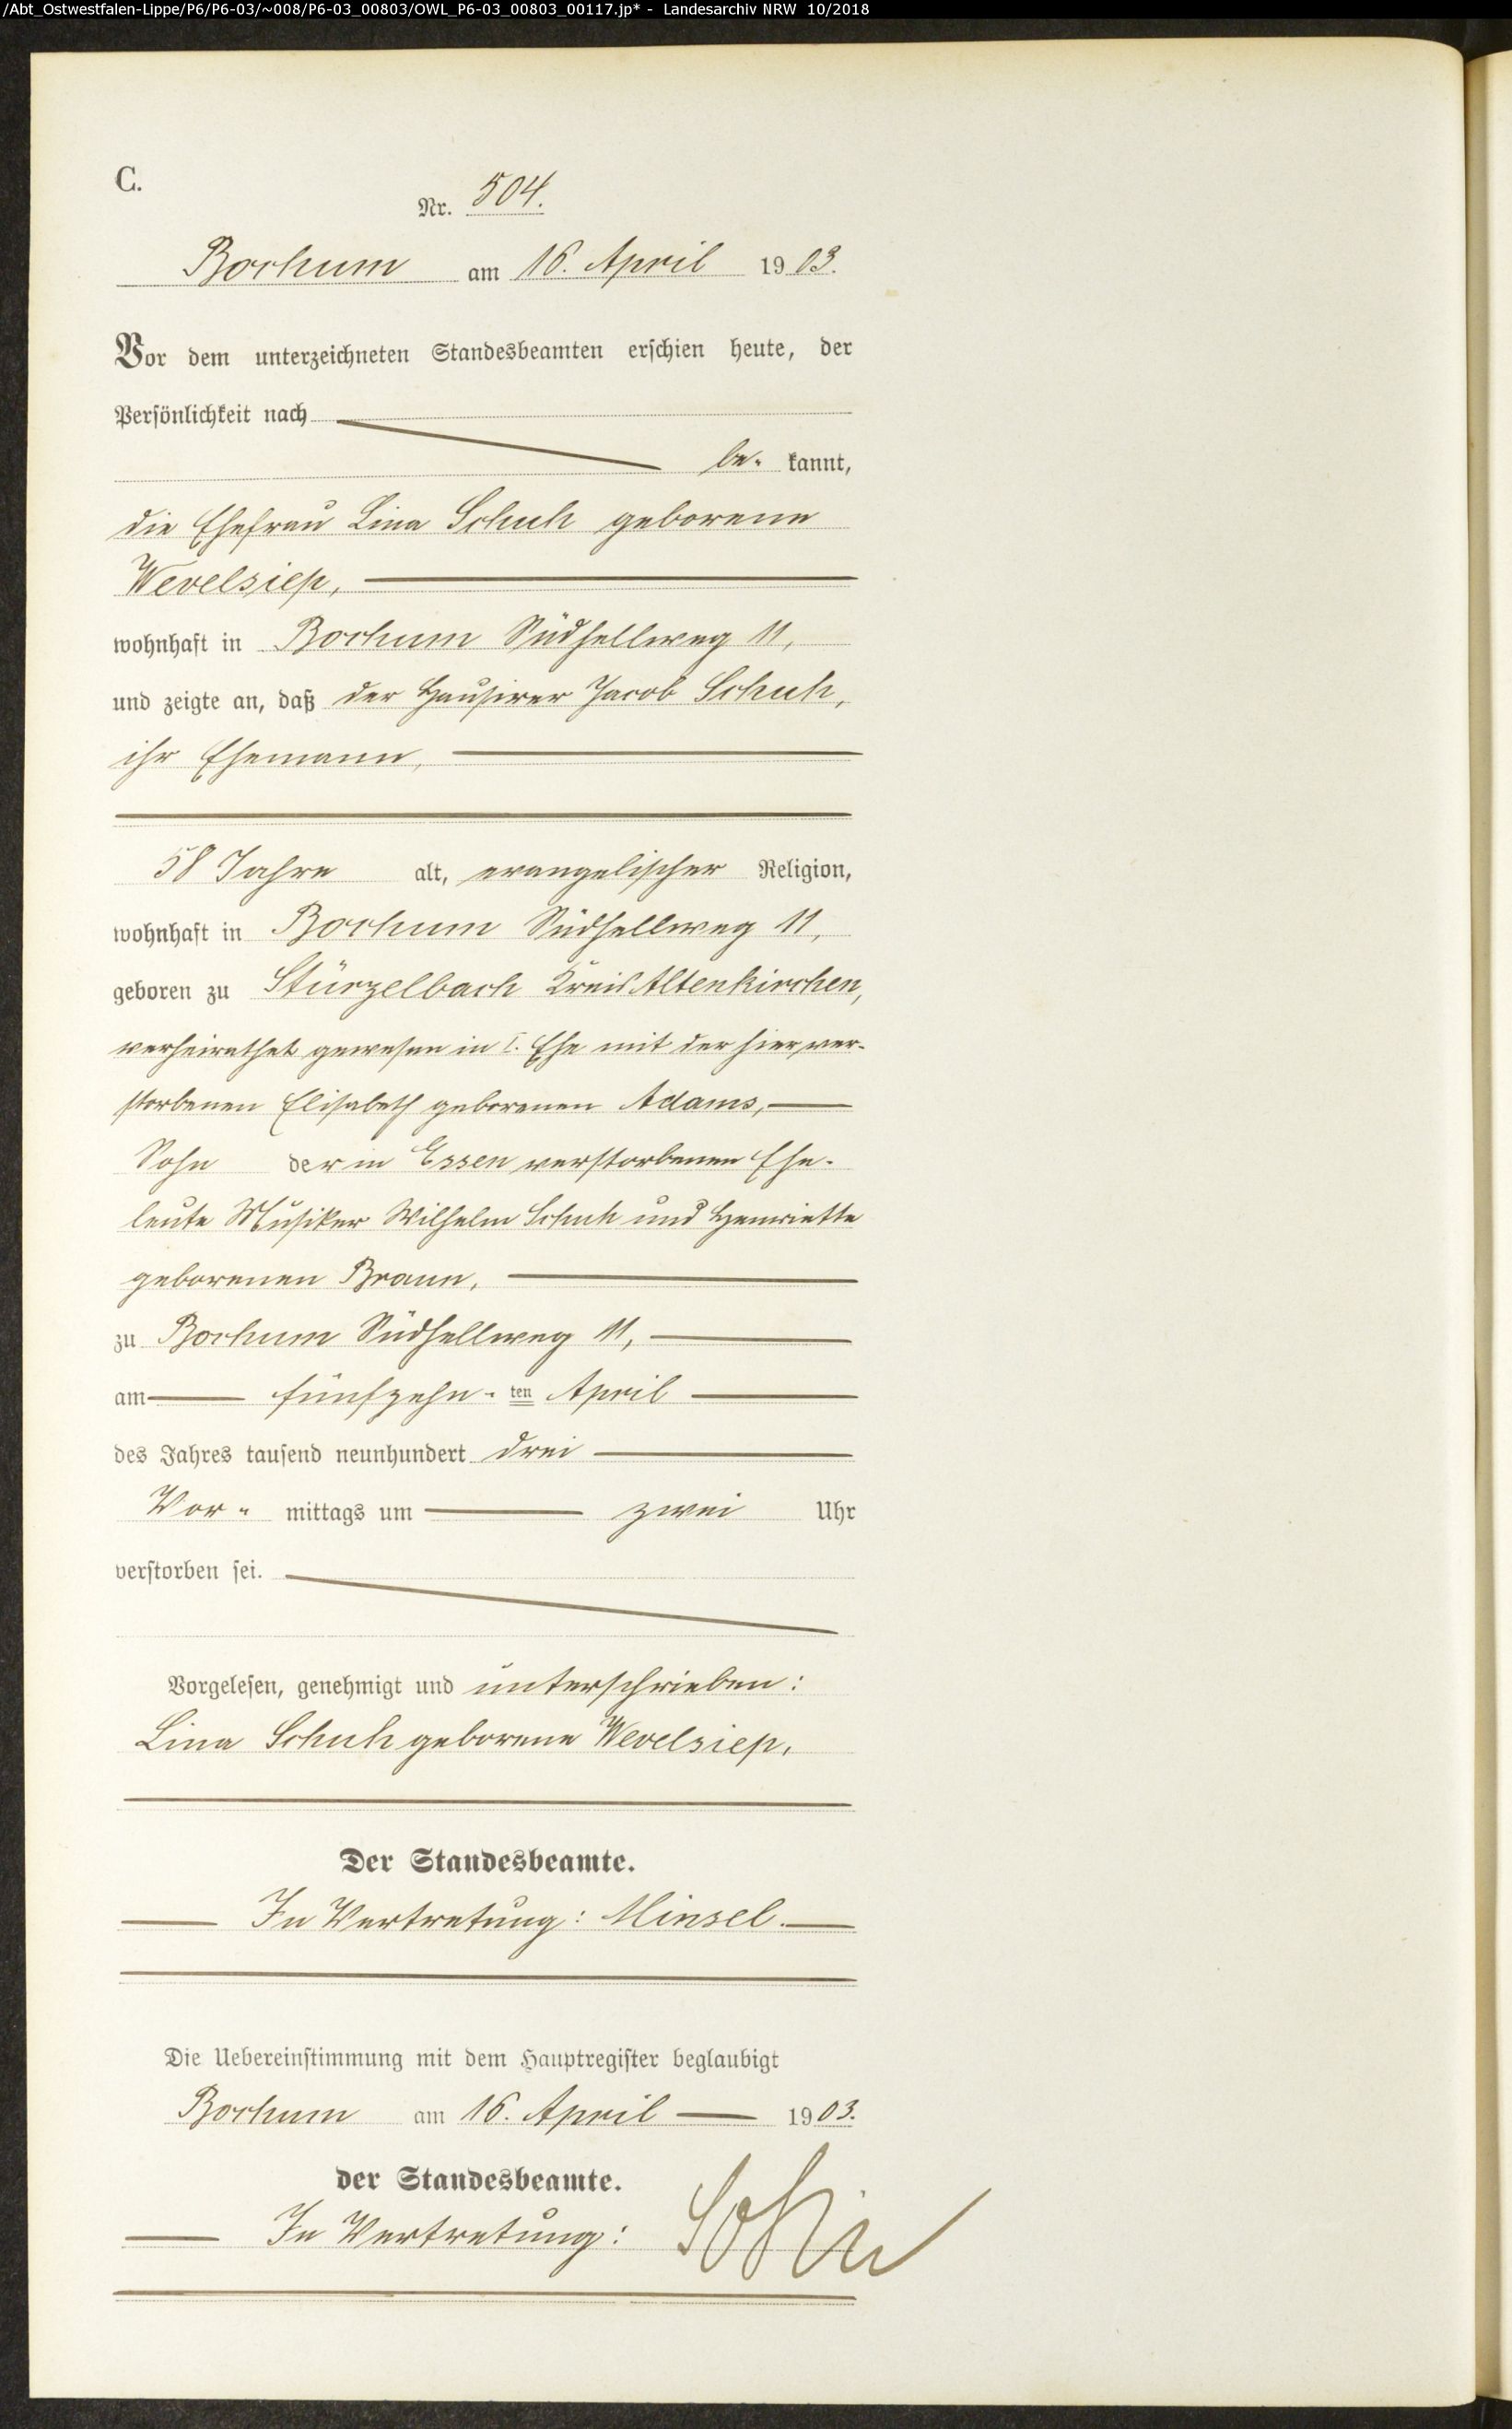 /Abt_Ostwestfalen-Lippe/P6/P6-03/~008/P6-03_00803/OWL_P6-03_00803_00117.jp* - Landesarchiv NRW 10/2018
C.
Nr. 504.
Bochum am 16. April 1903.
Vor dem unterzeichneten Standesbeamten erschien heute, der
Persönlichkeit nach
be- kannt,
die Ehefrau Lina Schuh geborene
Wevelsiep,
wohnhaft in Bochum Südhellweg 11,
und zeigte an, daß der Hausirer Jacob Schuh,
ihr Ehemann,
58 Jahre alt, evangelischer Religion,
wohnhaft in Bochum Südhellweg 11,
geboren zu Stürzelbach Kreis Altenkirchen,
verheirathet gewesen in I. Ehe mit der hier ver-
storbenen Elisabeth geborenen Adams,
Sohn der in Essen verstorbenen Ehe-
leute Musiker Wilhelm Schuh und Henriette
geborenen Braun,
zu Bochum Südhellweg 11,
am fünfzehn- ten April
des Jahres tausend neunhundert drei
Vor- mittags um zwei Uhr
verstorben sei.
Vorgelesen, genehmigt und unterschrieben:
Lina Schuh geborene Wevelsiep.
Der Standesbeamte.
In Vertretung: Minsel.
Die Uebereinstimmung mit dem Hauptregister beglaubigt
Bochum am 16. April 1903.
der Standesbeamte.
In Vertretung: